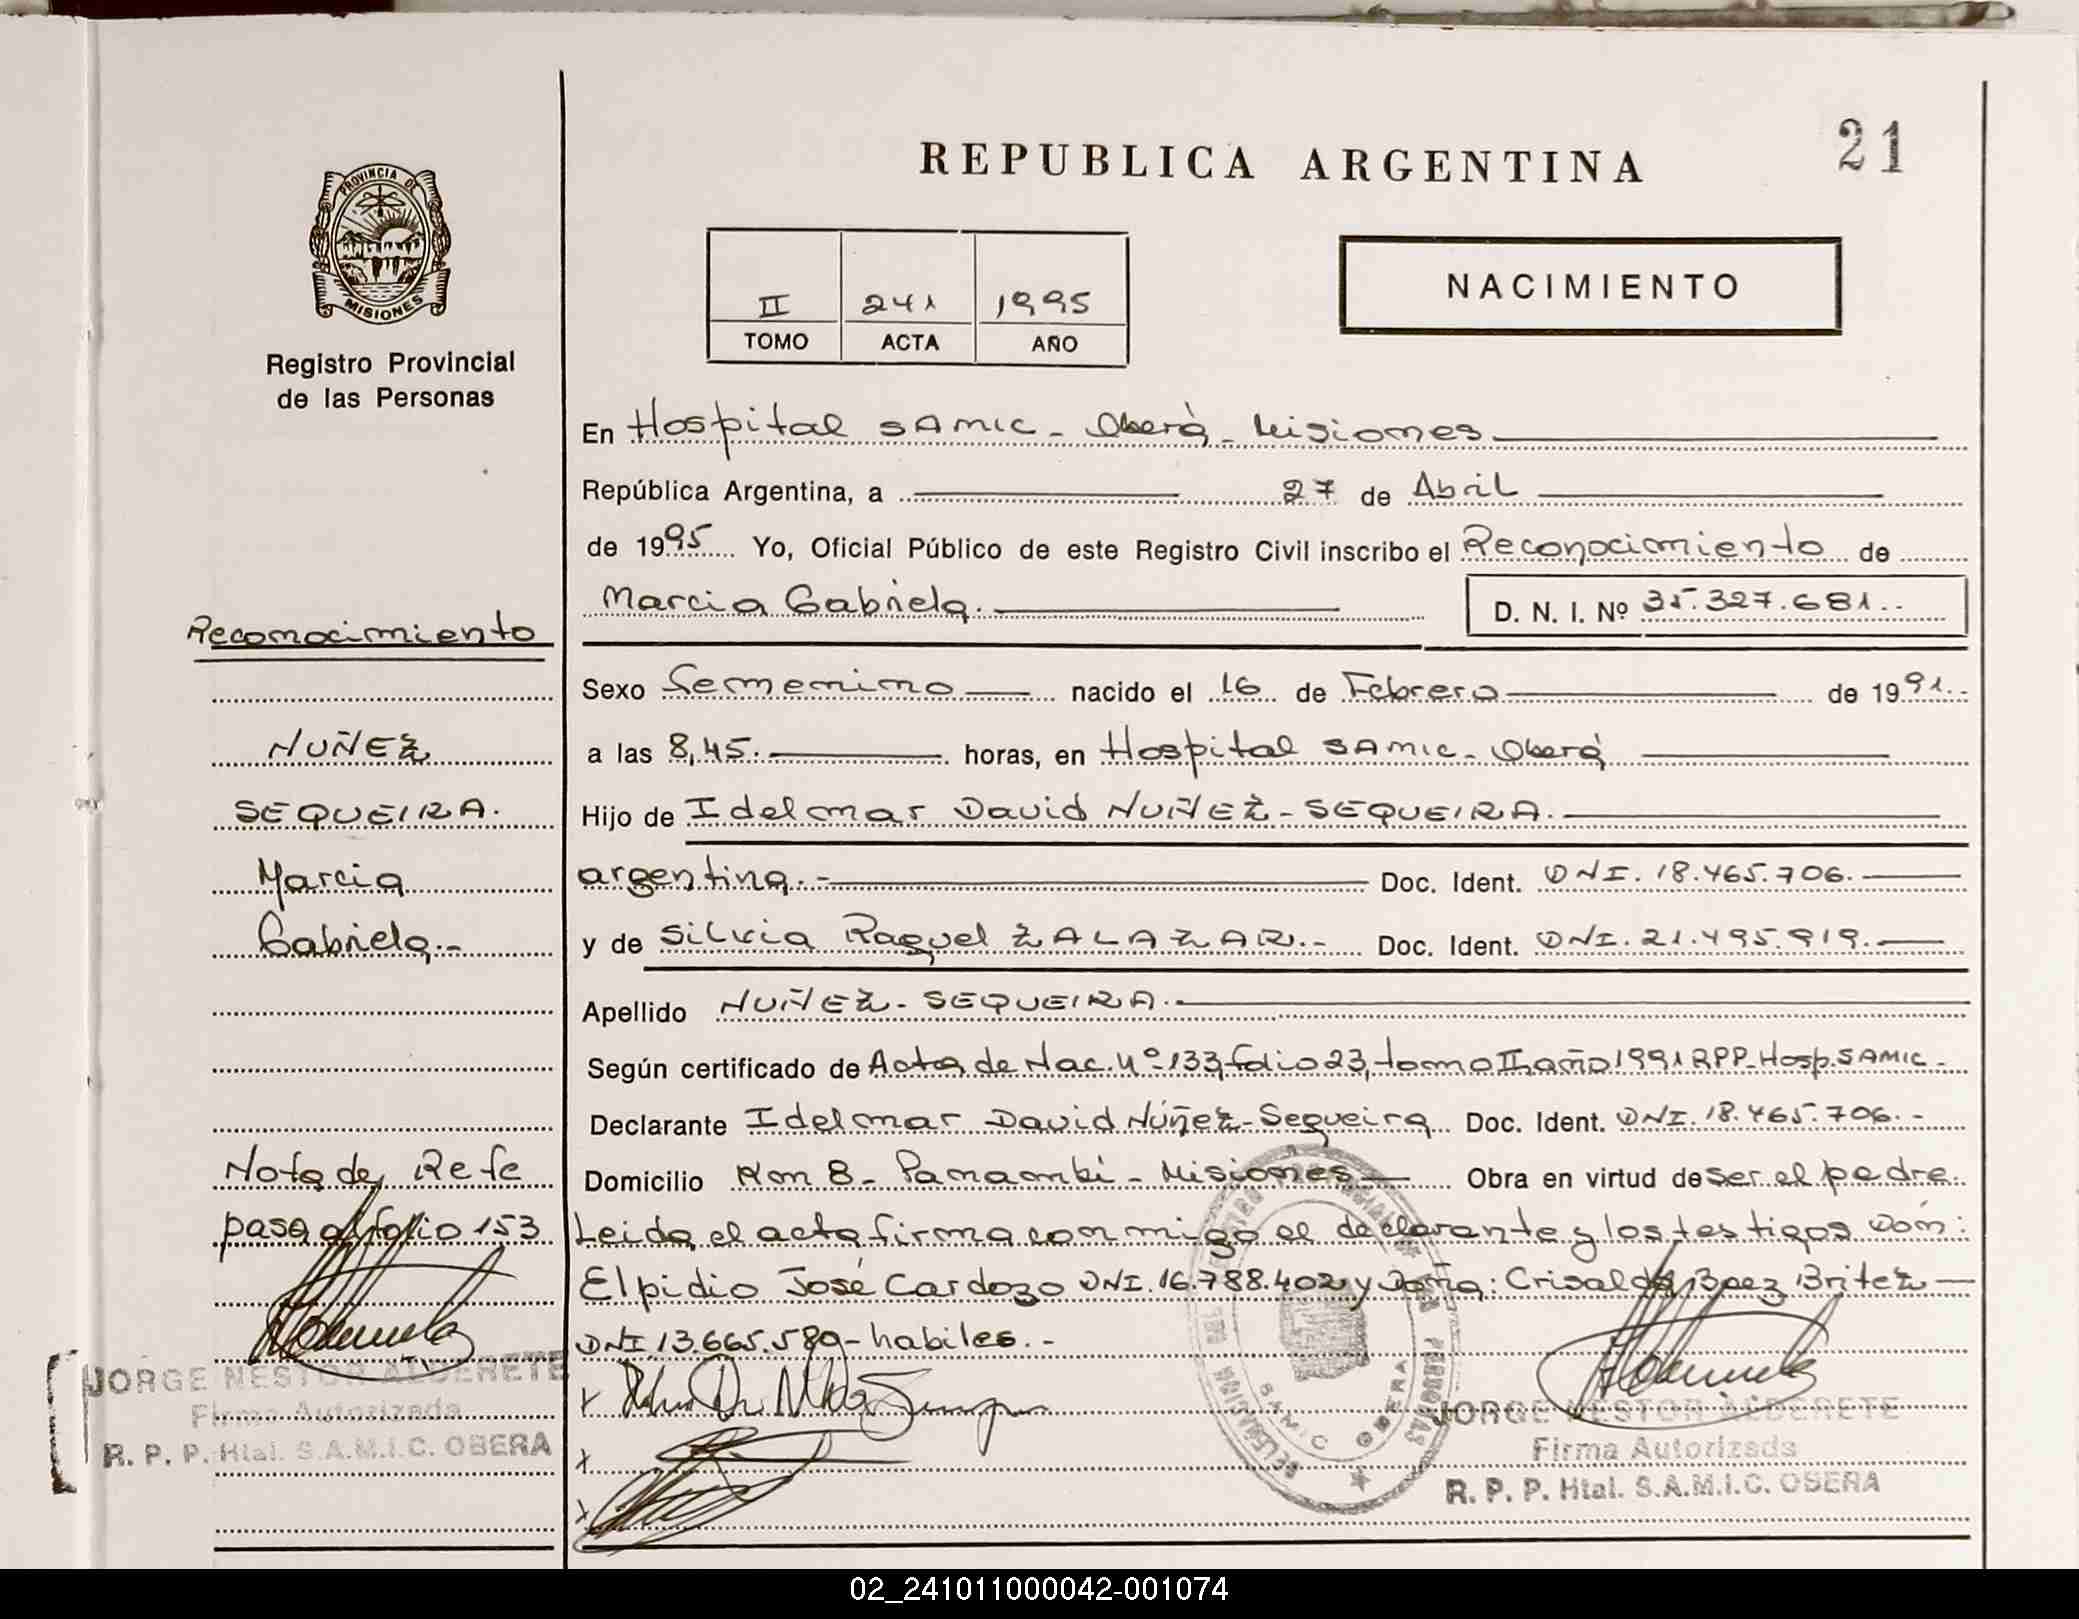 REPUBLICA ARGENTINA
21
PROVINCIA DE
MISIONES
Registro Provincial
de las Personas
II 241 1995
TOMO ACTA AÑO
NACIMIENTO
En Hospital SAMIC - Oberá - Misiones
República Argentina, a 27 de Abril
de 1995 Yo, Oficial Público de este Registro Civil inscribo el Reconocimiento de
Marcia Gabriela.
D. N. I. Nº 35.327.681..
Sexo Femenino nacido el 16 de Febrero de 1991.-
a las 8,45. horas, en Hospital SAMIC - Oberá
Hijo de Idelmar David NUÑEZ - SEQUEIRA.
argentina.- Doc. Ident. DNI. 18.465.706.
y de Silvia Raquel ZALAZAR.- Doc. Ident. DNI. 21.495.919.
Apellido NUÑEZ - SEQUEIRA.
Según certificado de Acta de Nac. Nº 133, folio 23, tomo II año 1991 RPP - Hosp. SAMIC -
Declarante Idelmar David Núñez - Sequeira Doc. Ident. DNI. 18.465.706.-
Domicilio Km 8 - Panambí - Misiones Obra en virtud de ser el padre.
Leida el acta firma con migo el declarante y los testigos Don:
Elpidio José Cardozo DNI. 16.788.402 y Doña: Crisalda Baez Britez
DNI 13.665.589 - habiles.-
JORGE NESTOR ALDERETE
Firma Autorizada
R. P. P. Htal. S.A.M.I.C. OBERA
SAMIC OBERA
Reconocimiento
NUÑEZ
SEQUEIRA.
Marcia
Gabriela.-
Nota de Refe
pasa al folio 153
JORGE NESTOR ALDERETE
Firma Autorizada
R. P. P. Htal. S.A.M.I.C. OBERA
02_241011000042-001074